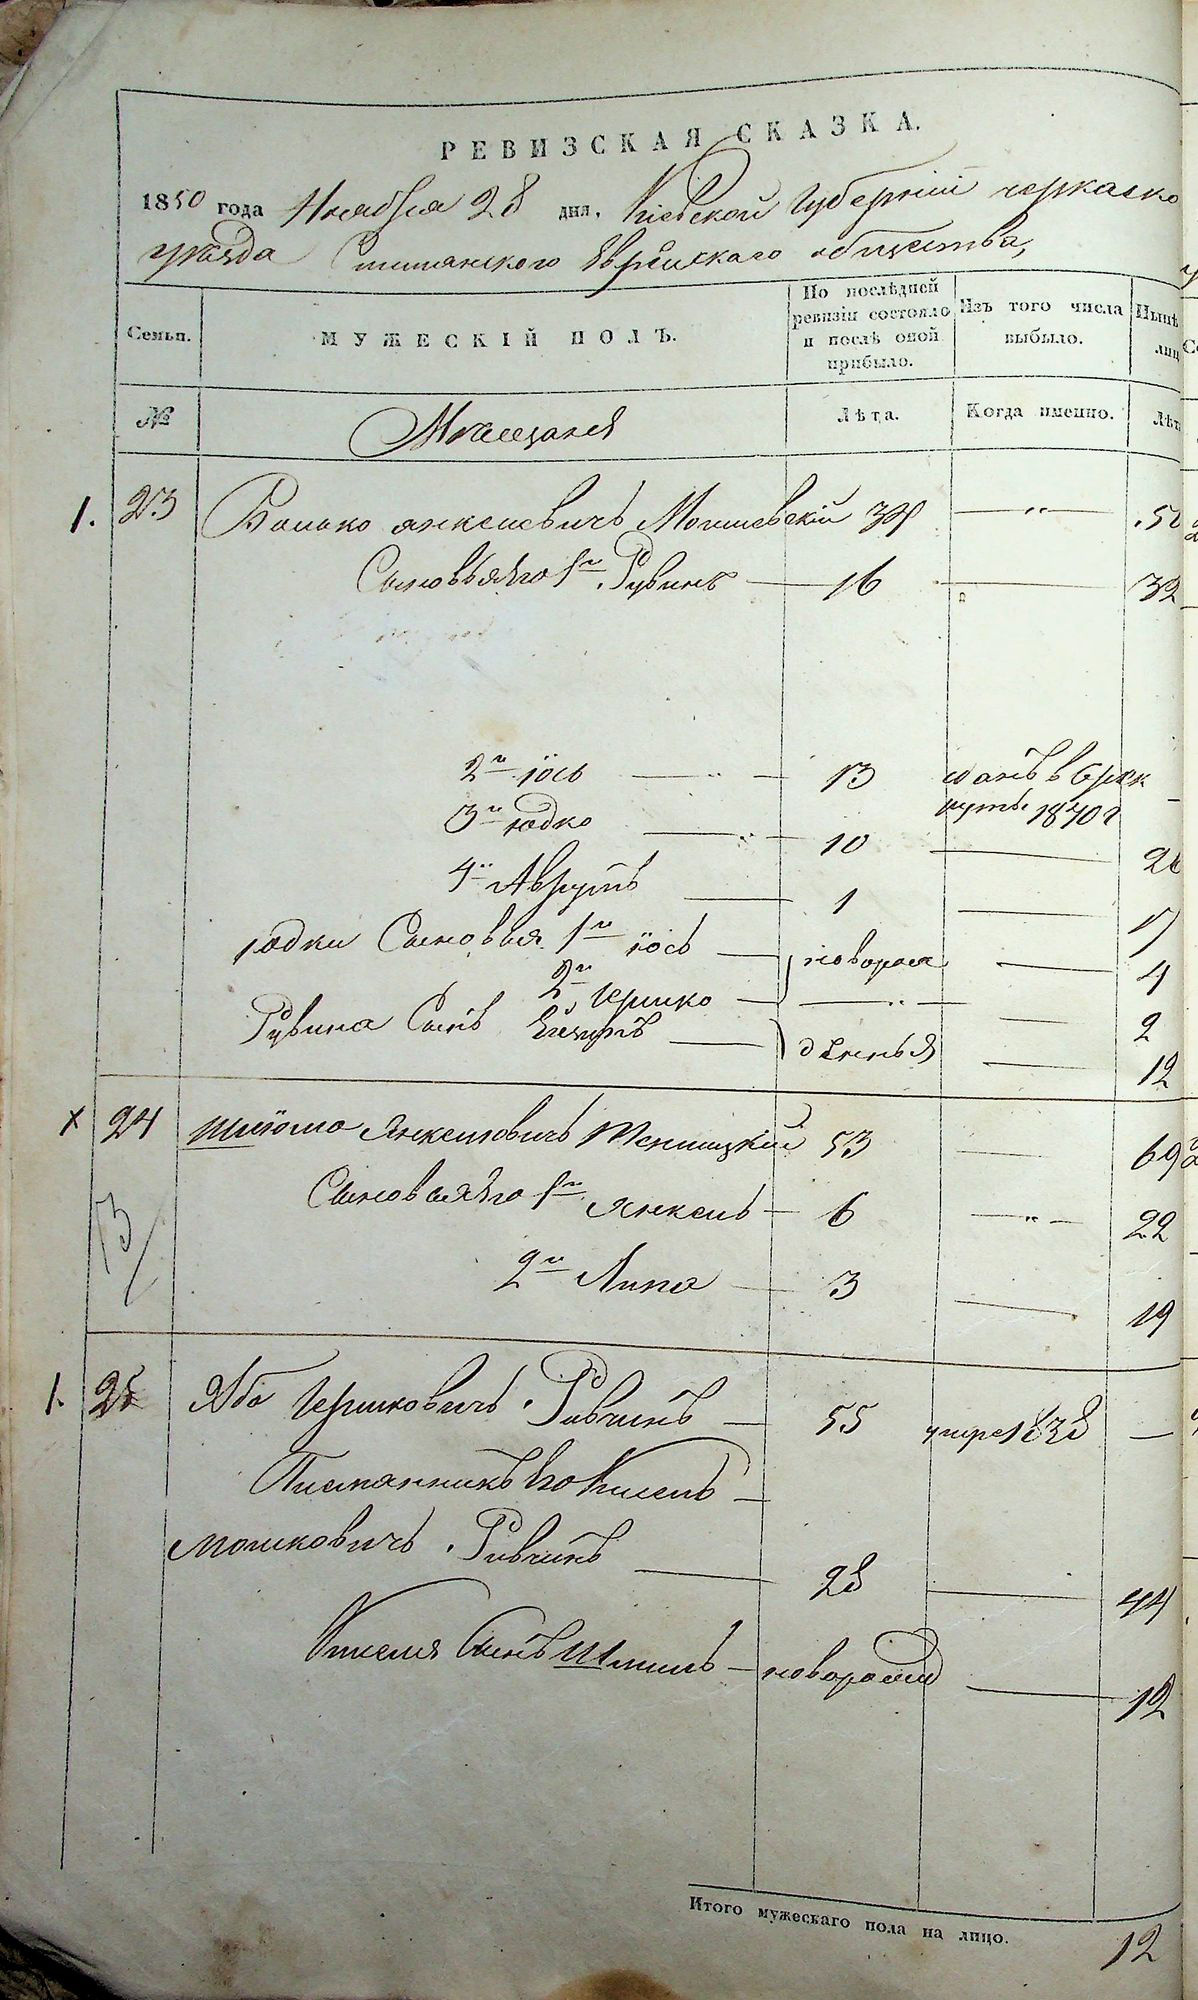 РЕВИЗСКАЯ СКАЗКА.
1850 года Ноября 28 дня, Кіевской Губерніи Черкаско
уезда Еврейскаго общества,
Семьи. МУЖЕСКІЙ ПОЛЪ. По послѣдней ревизіи состояло и послѣ оной прибыло. Изъ того числа выбыло. Нынѣ лиц
№ Мещаня Лѣта. Когда именно. Лѣт
1. 23 Янкелевичъ Мошевскій 34 — „ — 50
Сыновья Его 1й Рувинъ — 16 — 32
2й Іось — „ — 13 в Рек
руты 1840 г
3й Юдко — „ — 10 — 26
4й Аврумъ — 1 — 17
Юдки Сыновья 1й Іось — новорож — 4
2й Гершко — — „ — 2
Рувина Сынъ — денныя — 12
х 24 Шліома Янкелевичъ 53 — 69
Сыновья Его 1й Янкель — 6 — „ — 22
13/
2й Липа — 3 — 19
1. 25 Або Гершковичъ Ривчинъ — 55 умре 1838 —
Племянникъ Его Кисель —
Мошковичъ Ривчинъ — 28 — 44
Киселя Сынъ Шмиль — новорожд — 12
Итого мужескаго пола на лицо. 12